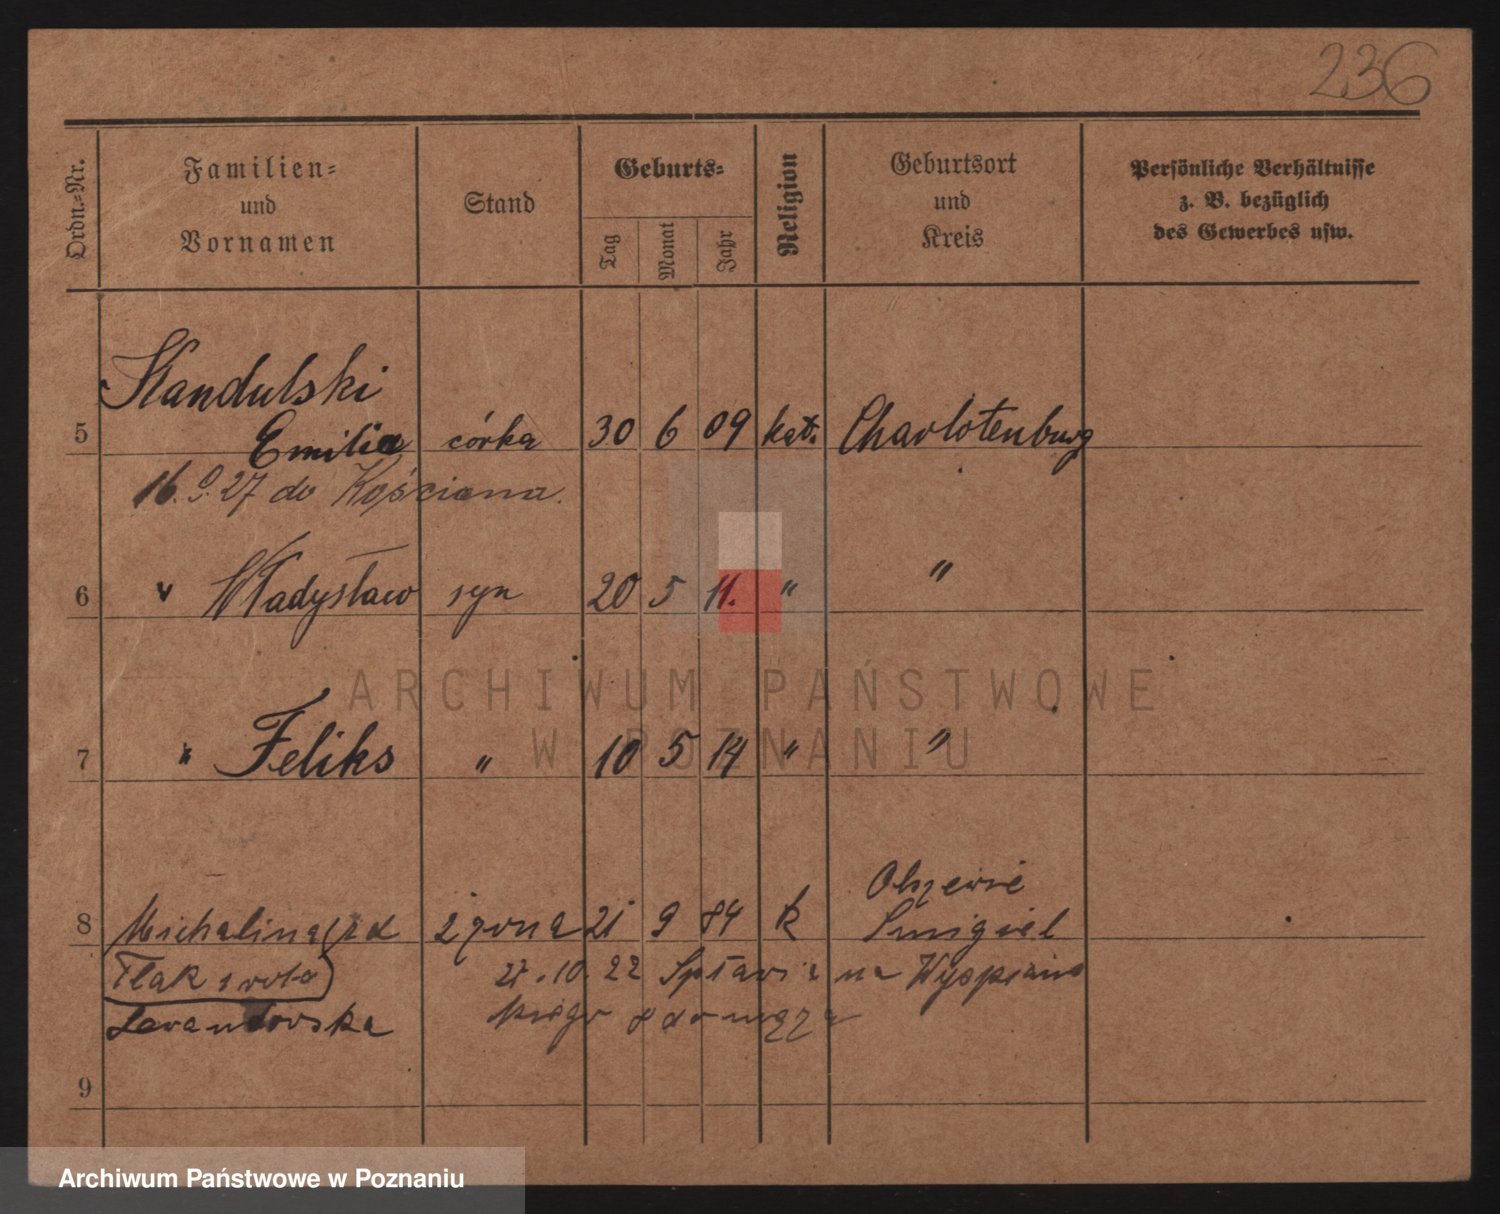 236
Ordn.-Nr.
Familien-
und
Vornamen
Stand
Geburts-
Tag
Monat
Jahr
Religion
Geburtsort
und
Kreis
Persönliche Verhältnisse
z. B. bezüglich
des Gewerbes usw.
Skandulski
5 Emilia córka 30 6 09 kat. Charlotenburg
16. 9. 27 do Kościana.
6 " Władysław syn 20 5 11. " "
ARCHIWUM PAŃSTWOWE
W POZNANIU
7 " Feliks " 10 5 14 " "
8 Michalina żona 21 9 84 k
Śmigiel
27.10.22 na Wyspiańs
kiego 8 do męża
9
Archiwum Państwowe w Poznaniu